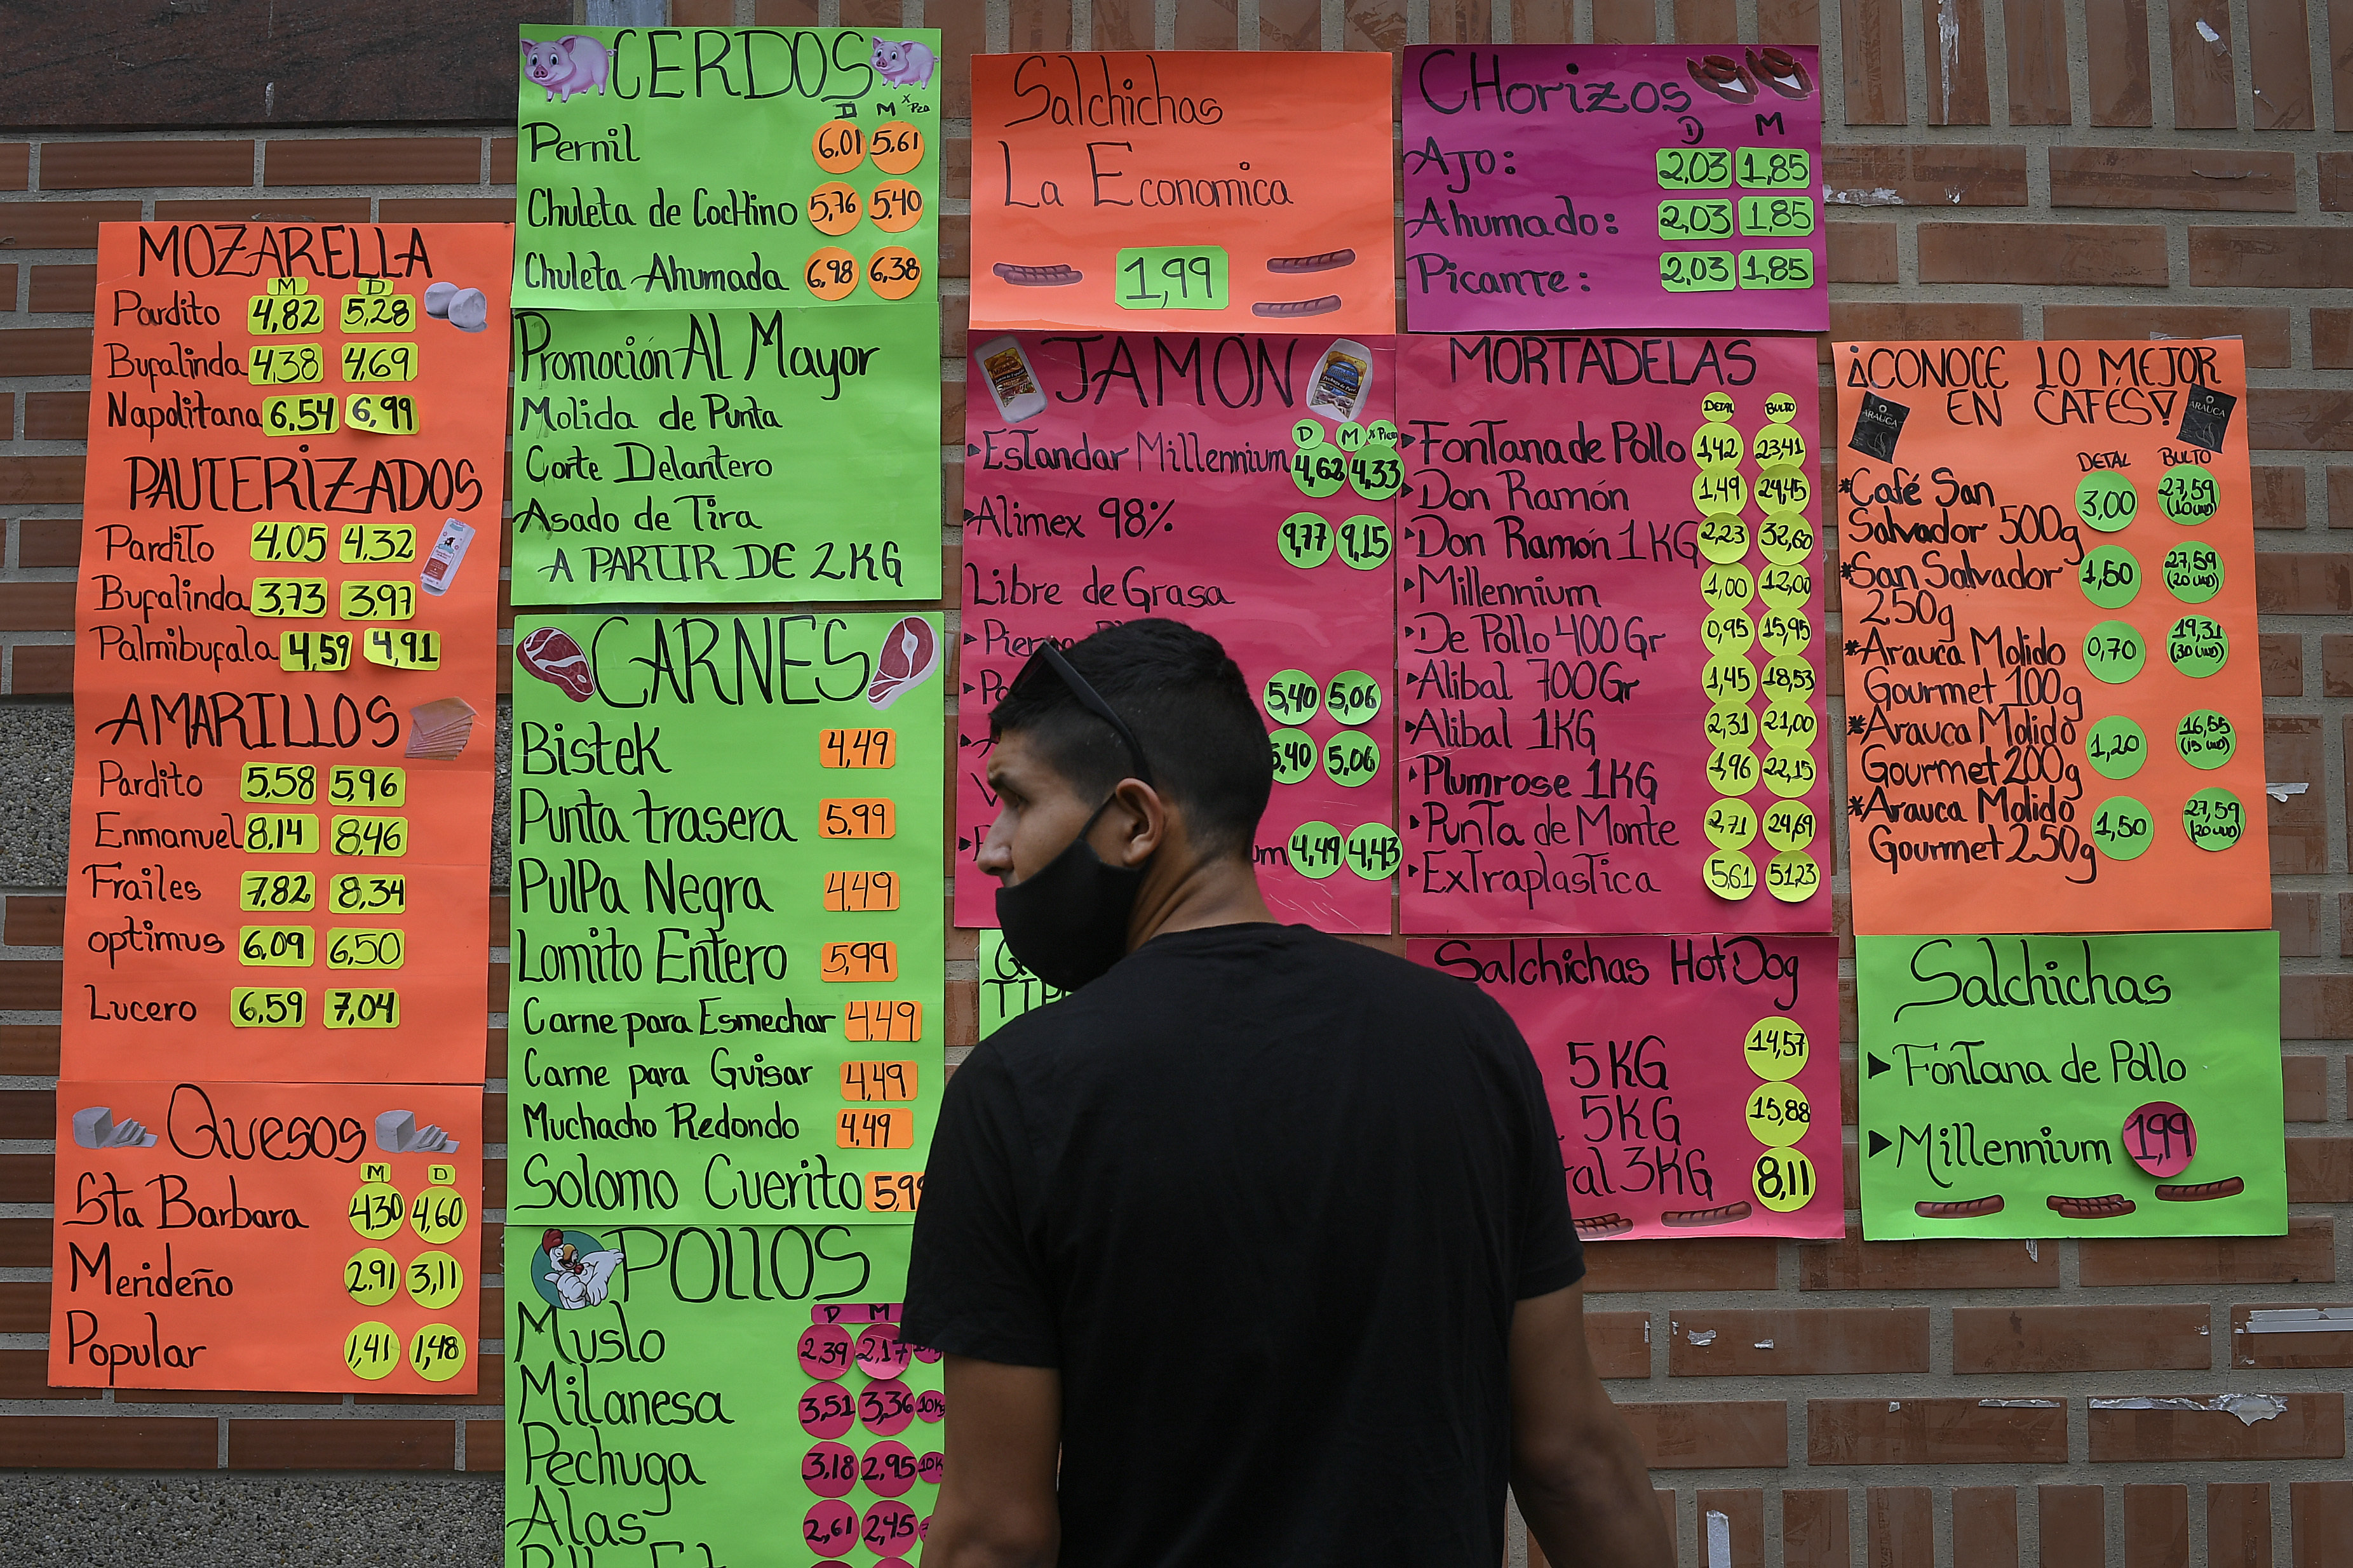 MOZARELLA
M D
Pardito 4,82 5,28
Bufalinda 4,38 4,69
Napolitana 6,54 6,99
PAUTERIZADOS
Pardito 4,05 4,32
Bufalinda 3,73 3,97
Palmibufala 4,59 4,91
AMARILLOS
Pardito 5,58 5,96
Enmanuel 8,14 8,46
Frailes 7,82 8,34
optimus 6,09 6,50
Lucero 6,59 7,04
Quesos
M D
Sta Barbara 4,30 4,60
Merideño 2,91 3,11
Popular 1,41 1,48
CERDOS
D M x Pza
Pernil 6,01 5,61
Chuleta de Cochino 5,76 5,40
Chuleta Ahumada 6,98 6,38
Promoción Al Mayor
Molida de Punta
Corte Delantero
Asado de Tira
A PARTIR DE 2KG
CARNES
Bistek 4,49
Punta trasera 5,99
Pulpa Negra 4,49
Lomito Entero 5,99
Carne para Esmechar 4,49
Carne para Guisar 4,49
Muchacho Redondo 4,49
Solomo Cuerito 5,99
POLLOS
D M
Muslo 2,39 2,17
Milanesa 3,51 3,36 10Kg
Pechuga 3,18 2,95 10K
Alas 2,61 2,45
Salchichas
La Economica
1,99
JAMÓN
D M x Pieza
Estandar Millennium 4,62 4,33
Alimex 98% 9,77 9,15
Libre de Grasa
5,40 5,06
5,40 5,06
4,49 4,43
CHorizos
D M
Ajo: 2,03 1,85
Ahumado: 2,03 1,85
Picante: 2,03 1,85
MORTADELAS
DETAL BULTO
Fontana de Pollo 1,42 23,41
Don Ramón 1,49 24,45
Don Ramón 1KG 2,23 32,60
Millennium 1,00 12,00
De Pollo 400Gr 0,95 15,95
Alibal 700Gr 1,45 18,53
Alibal 1KG 2,31 21,00
Plumrose 1KG 1,96 22,15
Punta de Monte 2,71 24,69
Extraplastica 5,61 51,23
Salchichas Hot Dog
5KG 14,57
5KG 15,88
tal 3KG 8,11
¡CONOCE LO MEJOR
EN CAFÉS!
ARAUCA ARAUCA
DETAL BULTO
*Café San
Salvador 500g 3,00 27,59 (10 UND)
*San Salvador
250g 1,50 27,59 (20 UND)
*Arauca Molido
Gourmet 100g 0,70 19,31 (30 UND)
*Arauca Molido
Gourmet 200g 1,20 16,55 (15 UND)
*Arauca Molido
Gourmet 250g 1,50 27,59 (20 UND)
Salchichas
Fontana de Pollo
Millennium 1,99